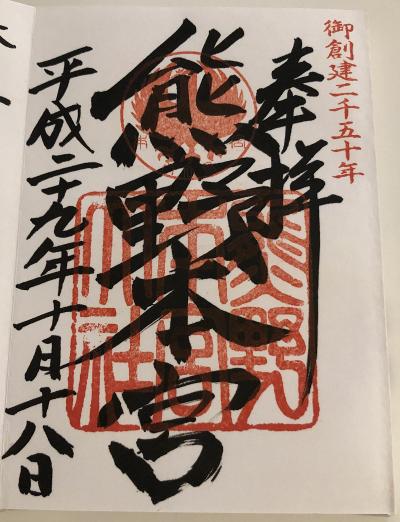 御創建二千五十年
奉拝
熊野本宮
平成二十九年十月十八日